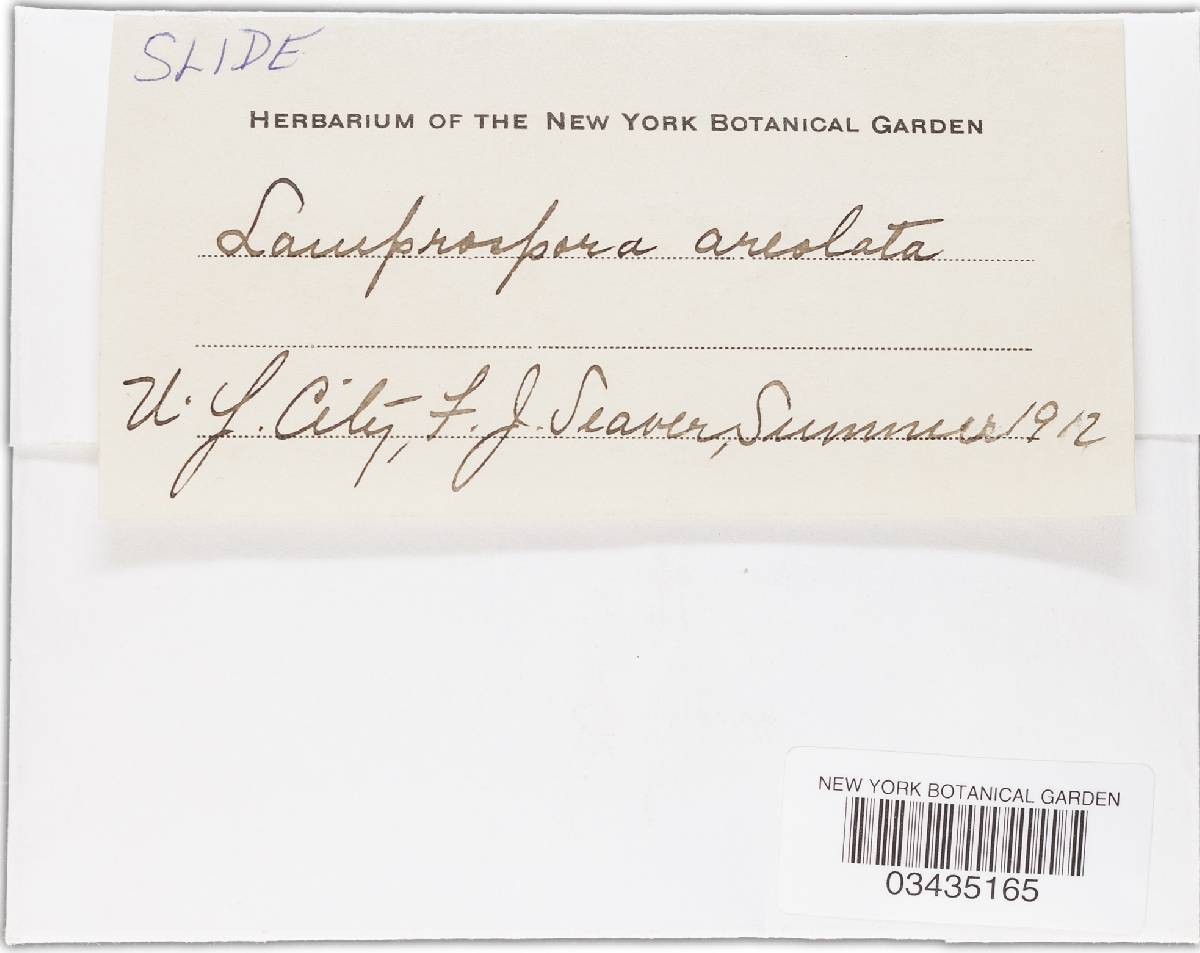 SLIDE
HERBARIUM OF THE NEW YORK BOTANICAL GARDEN
Lamprospora areolata
N. Y. City, F. J. Seaver, Summer 1912
NEW YORK BOTANICAL GARDEN
03435165